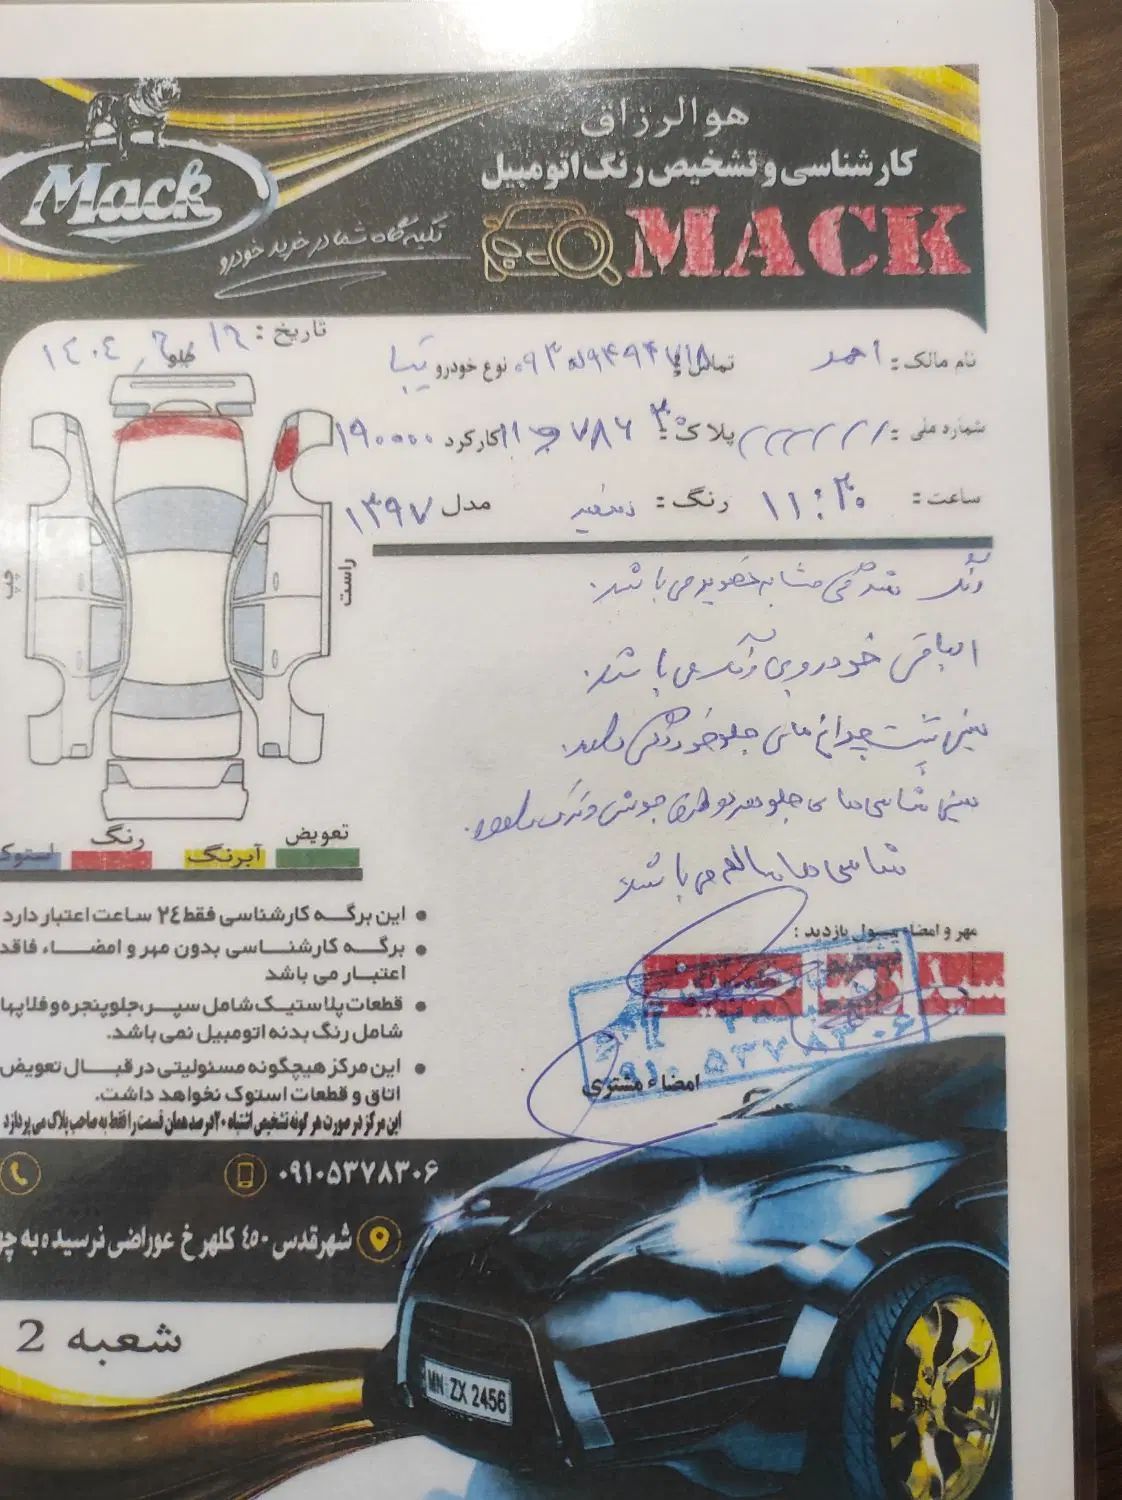 هوالرزاق
کارشناسی و تشخیص رنگ اتومبیل
MACK
Mack
تکیه گاه شما در خرید خودرو
تاریخ : ۱۴۰۴ ۱۶
نام مالک : احمد تماس نوع خودرو تیبا
شماره ملی : پلاک : ۷۸۶ ۱۱ کارکرد ۱۹۰۰۰۰
ساعت : ۱۱:۳۰ رنگ : سفید مدل ۱۳۹۷
جلو
چپ
راست
رنگ می باشد.
الباقی خودرو بی رنگ می باشد.
سینی جلو خوردگی دارد.
سینی شاسی های جلو جوش و ترک دارد.
شاسی ها سالم می باشد
تعویض
رنگ
آبرنگ
استوک
مهر و امضاء مسول بازدید :
امضاء مشتری
این برگه کارشناسی فقط ۲۴ ساعت اعتبار دارد
برگه کارشناسی بدون مهر و امضاء فاقد
اعتبار می باشد
قطعات پلاستیک شامل سپر، جلو پنجره و فلاپها
شامل رنگ بدنه اتومبیل نمی باشد.
این مرکز هیچگونه مسئولیتی در قبال تعویض
اتاق و قطعات استوک نخواهد داشت.
این مرکز در صورت هر گونه تشخیص اشتباه ۲۰درصد همان قسمت را فقط به صاحب پلاک می پردازد
۰۹۱۰۵۳۷۸۳۰۶
شهرقدس ۴۵۰ کلهر خ عوراضی نرسیده به
شعبه 2
MN ZX 2456